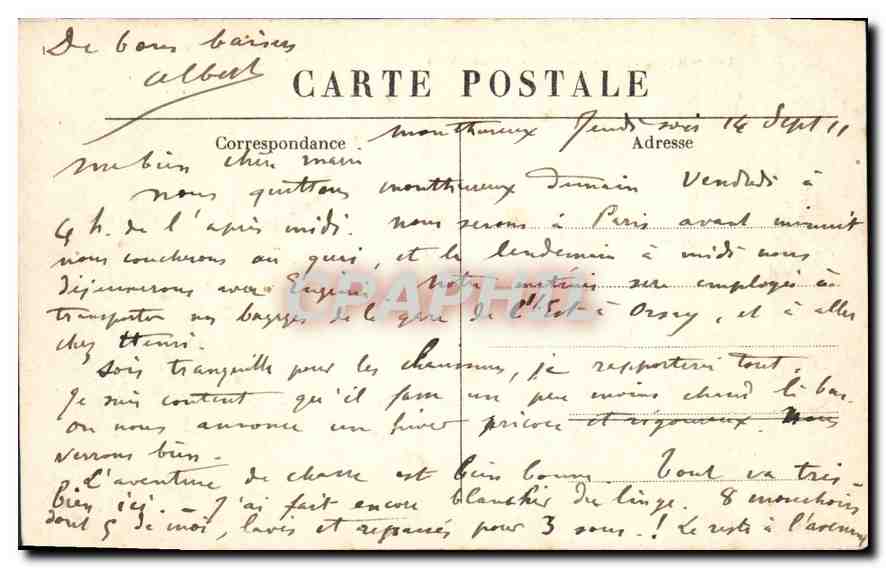 De bons baisers
Albert
CARTE POSTALE
Correspondance
Adresse
Monthureux Jeudi soir 14 Sept 11
Ma bien chère mami
Nous quittons Monthureux demain Vendredi à
4 h. de l'après midi. Nous serons à Paris avant minuit
nous coucherons au quai, et le lendemain à midi nous
déjeunerons avec Eugénie. Notre matinée sera employée à
transporter nos bagages de la gare de l'Est à Orsay, et à aller
chez Henri.
Sois tranquille pour les chaussures, je rapporterai tout.
Je suis content qu'il fasse un peu moins chaud là bas.
on nous annonce un hiver précoce et rigoureux. Nous
verrons bien.
L'aventure de chasse est bien bonne. Tout va très
bien ici. _ J'ai fait encore blanchir du linge. 8 mouchoirs
dont 5 de moi, lavés et repassés pour 3 sous.! Le reste à l'avenant
CPAPHIL